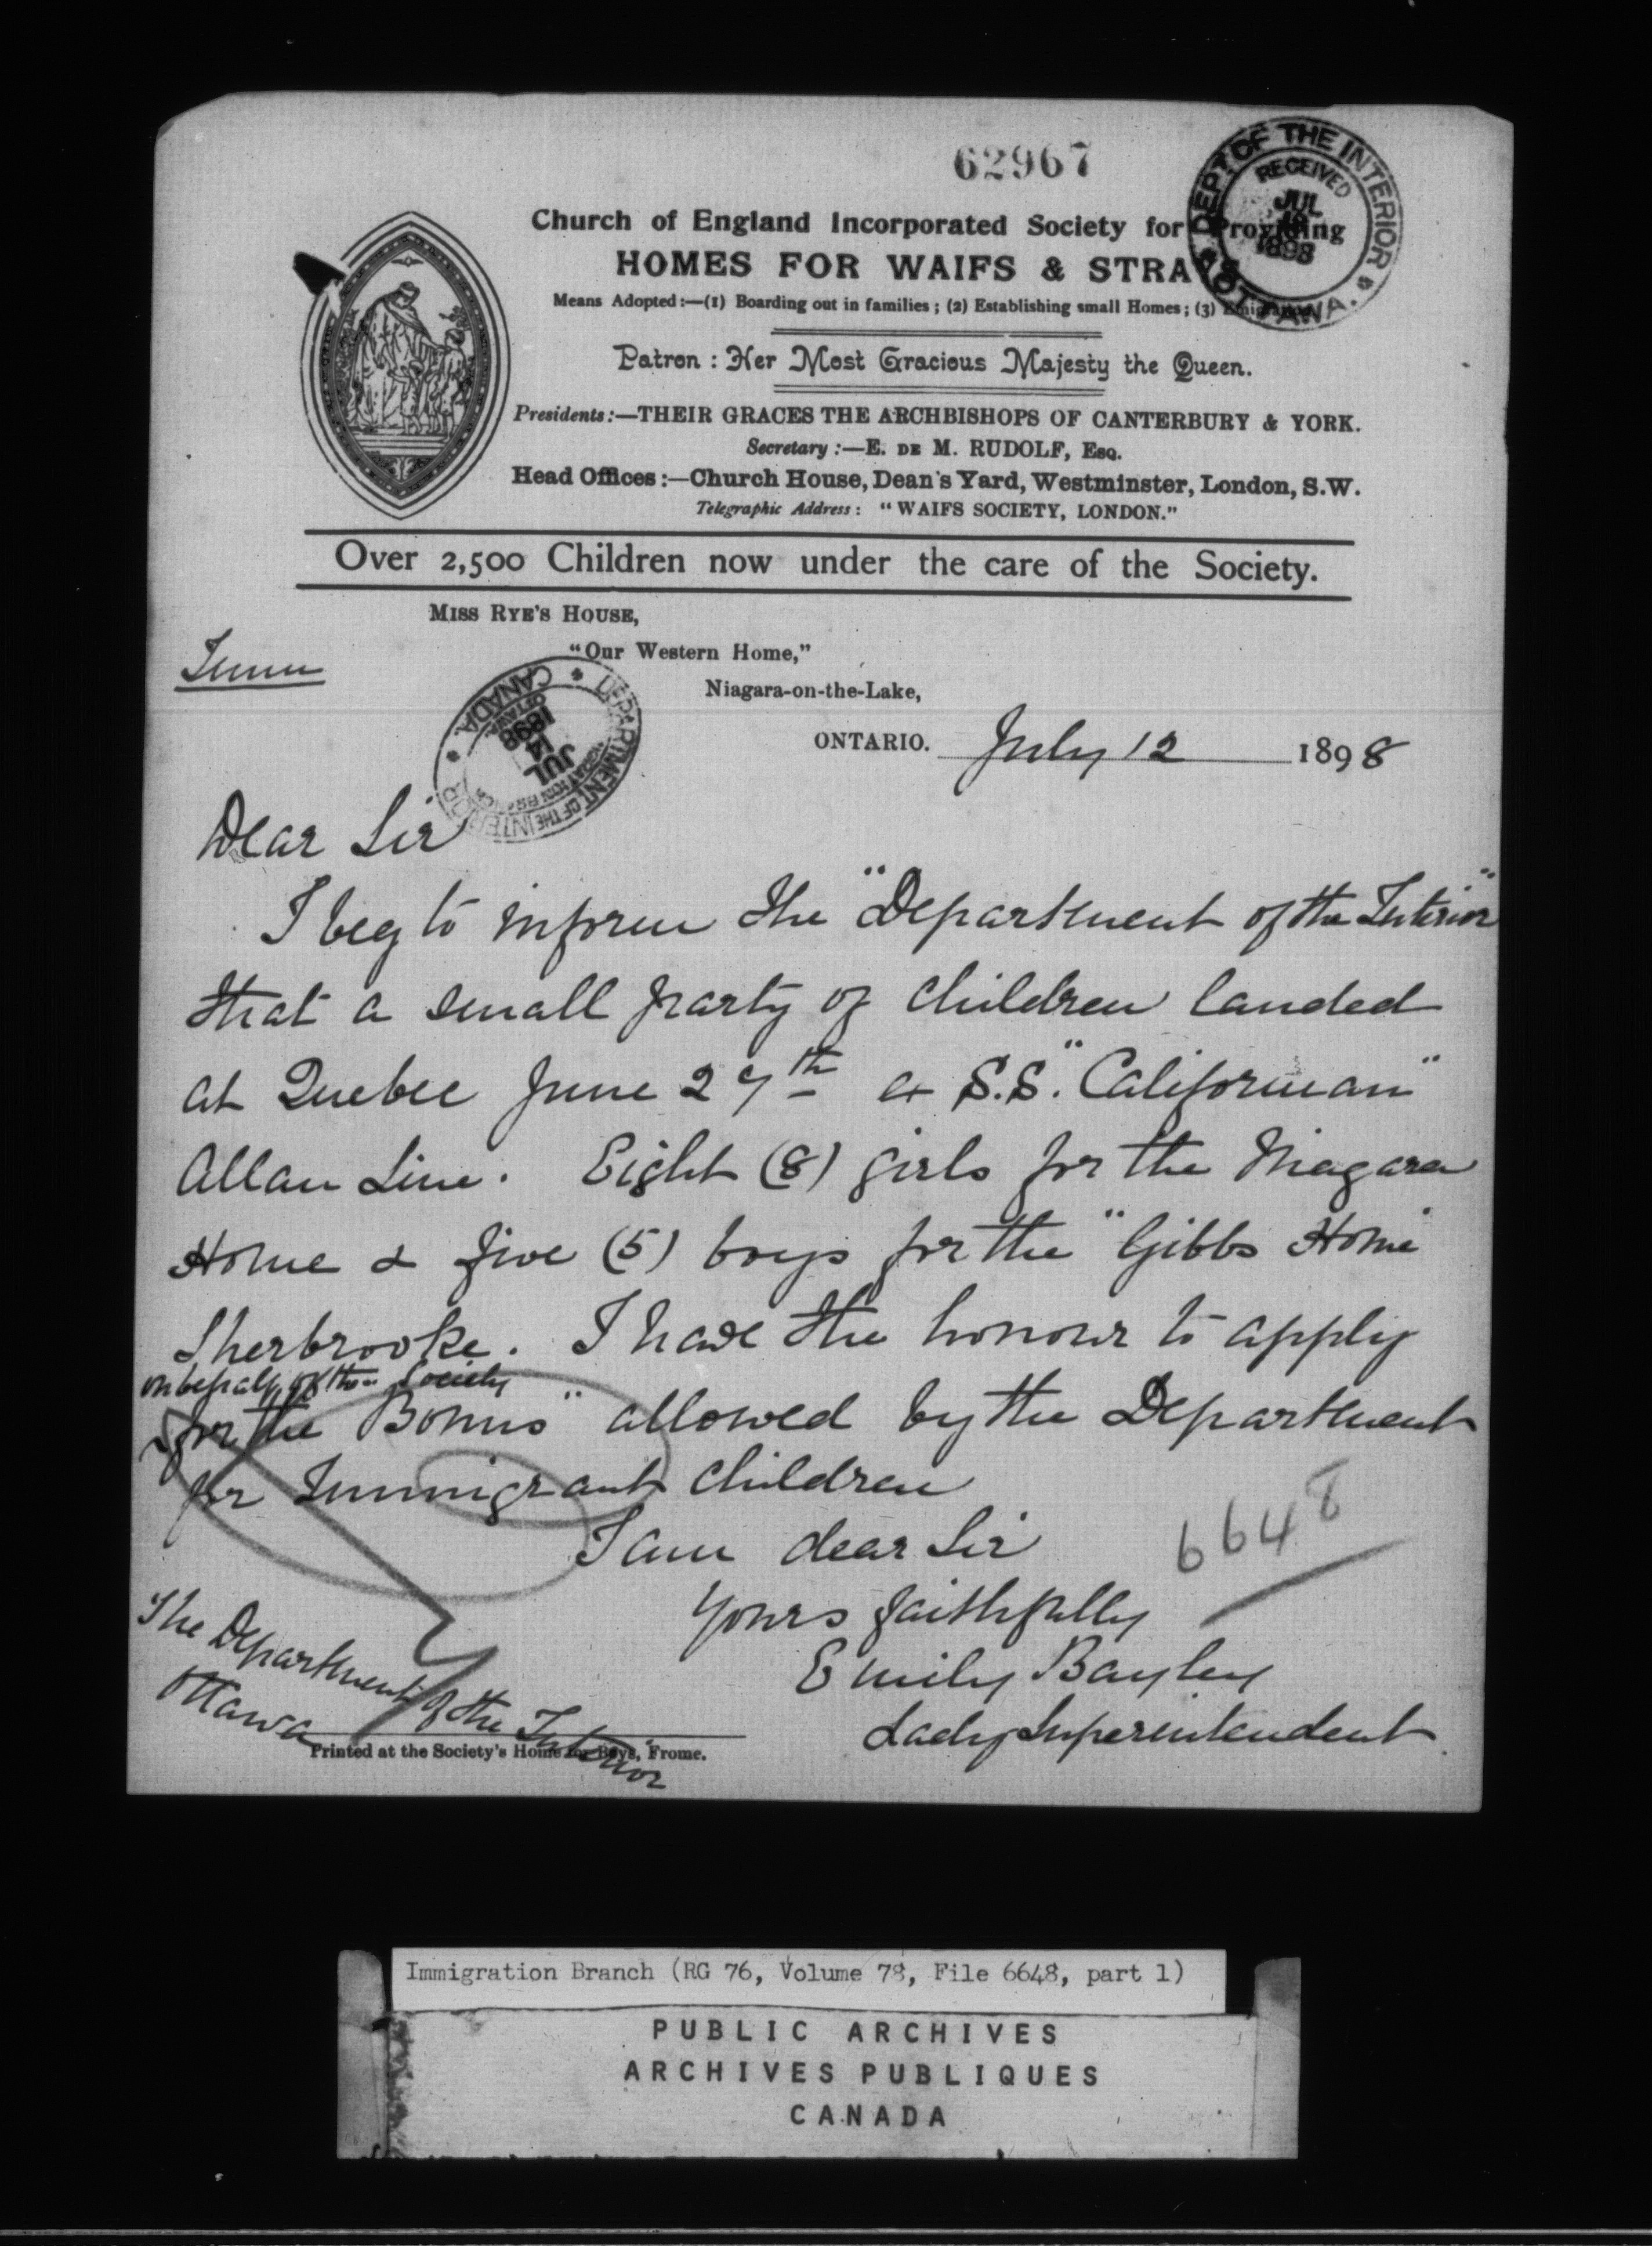 62967
DEPT OF THE INTERIOR
RECEIVED
JUL
1898
OTTAWA.
Church of England Incorporated Society for Providing
HOMES FOR WAIFS & STRAYS
Means Adopted:—(1) Boarding out in families; (2) Establishing small Homes; (3) Emigration
Patron: Her Most Gracious Majesty the Queen.
Presidents:—THEIR GRACES THE ARCHBISHOPS OF CANTERBURY & YORK.
Secretary:—E. DE M. RUDOLF, ESQ.
Head Offices:—Church House, Dean's Yard, Westminster, London, S.W.
Telegraphic Address: "WAIFS SOCIETY, LONDON."
Over 2,500 Children now under the care of the Society.
MISS RYE'S HOUSE,
"Our Western Home,"
Imm
Niagara-on-the-Lake,
ONTARIO. July 12 1898
DEPARTMENT OF THE INTERIOR
CANADA.
JUL
14
1898
Dear Sir
I beg to inform the "Department of the Interior"
that a small party of children landed
at Quebec June 27th ex S.S. "Californian"
Allan Line. Eight (8) girls for the Niagara
Home & five (5) boys for the "Gibbs Home"
Sherbrooke. I have the honour to apply
on behalf of the Society
for the "Bonus" allowed by the Department
for Immigrant children
I am dear Sir
6648
Yours faithfully
Emily Bayley
Lady Superintendent
The Department of the Interior
Ottawa
Printed at the Society's Home for Boys, Frome.
Immigration Branch (RG 76, Volume 78, File 6648, part 1)
PUBLIC ARCHIVES
ARCHIVES PUBLIQUES
CANADA